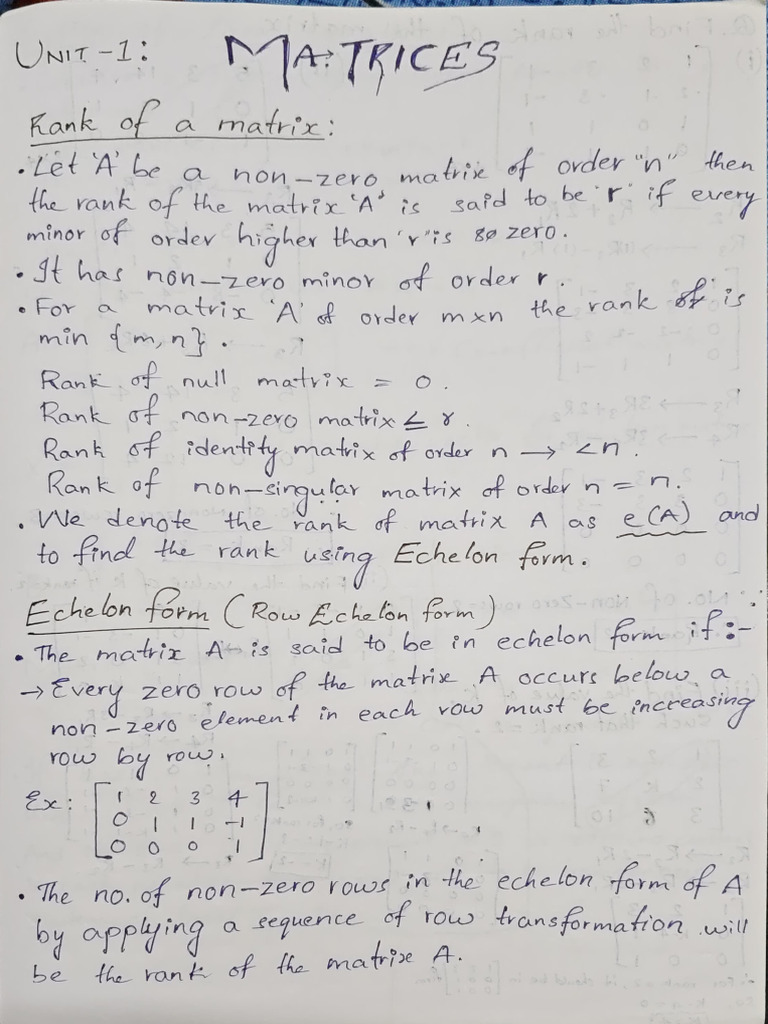 UNIT-1: MATRICES
Rank of a matrix:
• Let 'A' be a non-zero matrix of order "n" then
the rank of the matrix 'A' is said to be 'r' if every
minor of order higher than 'r' is zero.
• It has non-zero minor of order r.
• For a matrix 'A' of order m×n the rank is
min {m, n}.
Rank of null matrix = 0.
Rank of non-zero matrix ≤ r.
Rank of identity matrix of order n → <n.
Rank of non-singular matrix of order n = n.
• We denote the rank of matrix A as e(A) and
to find the rank using Echelon form.
Echelon form (Row Echelon form)
• The matrix A is said to be in echelon form if:-
→ Every zero row of the matrix A occurs below a
non-zero element in each row must be increasing
row by row.
Ex: [1 2 3 4
0 1 1 -1
0 0 0 1]
• The no. of non-zero rows in the echelon form of A
by applying a sequence of row transformation will
be the rank of the matrix A.